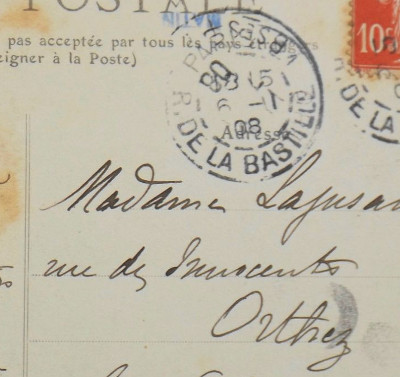 POSTALE
MATIN
pas acceptée par tous les pays étrangers
eigner à la Poste)
PARIS
R. DE LA BASTILLE
08
10c
R. DE LA
Adresse
Madame
rue des Innocents
Orthez